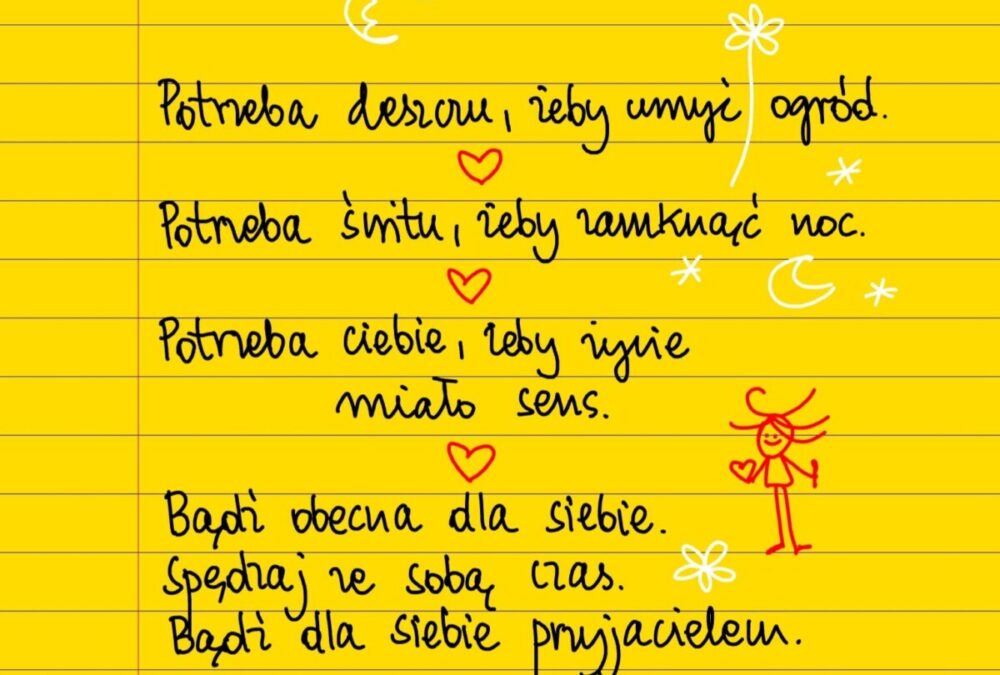 Potrzeba deszczu, żeby umyć ogród.
Potrzeba świtu, żeby zamknąć noc.
Potrzeba ciebie, żeby życie
miało sens.
Bądź obecna dla siebie.
Spędzaj ze sobą czas.
Bądź dla siebie przyjacielem.